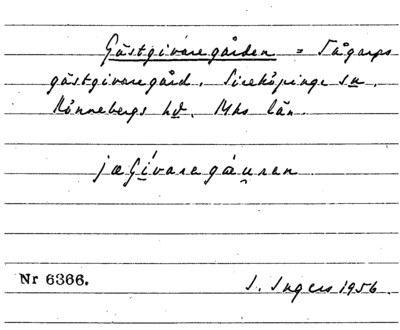 Gästgivaregården = Tågarps
gästgivaregård. Sireköpinge sn.
Rönnebergs hd. Mhs län.
jæGívaregæu̯ren
Nr 6366.
I. Ingers 1956.